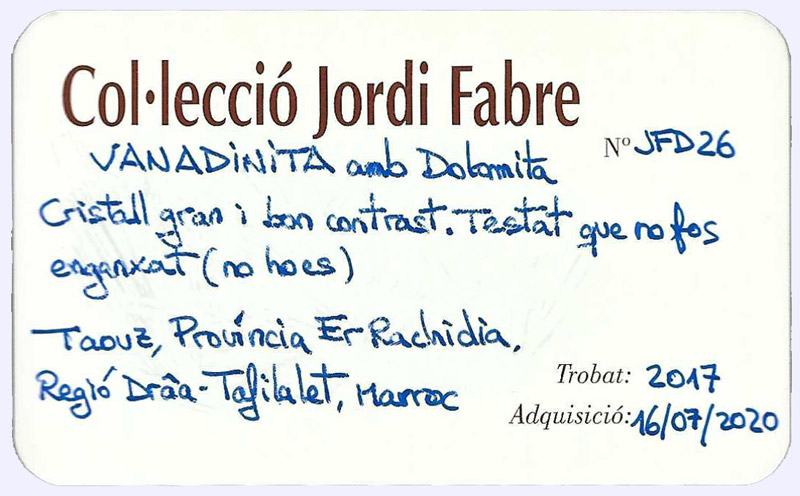 Col·lecció Jordi Fabre
Nº JFD26
VANADiNiTA amb Dolomita
Cristall gran i bon contrast. Testat que no fos
enganxat (no ho es)
Taouz, Província Er Rachidia,
Regió Drâa-Tafilalet, Marroc
Trobat: 2017
Adquisició: 16/07/2020